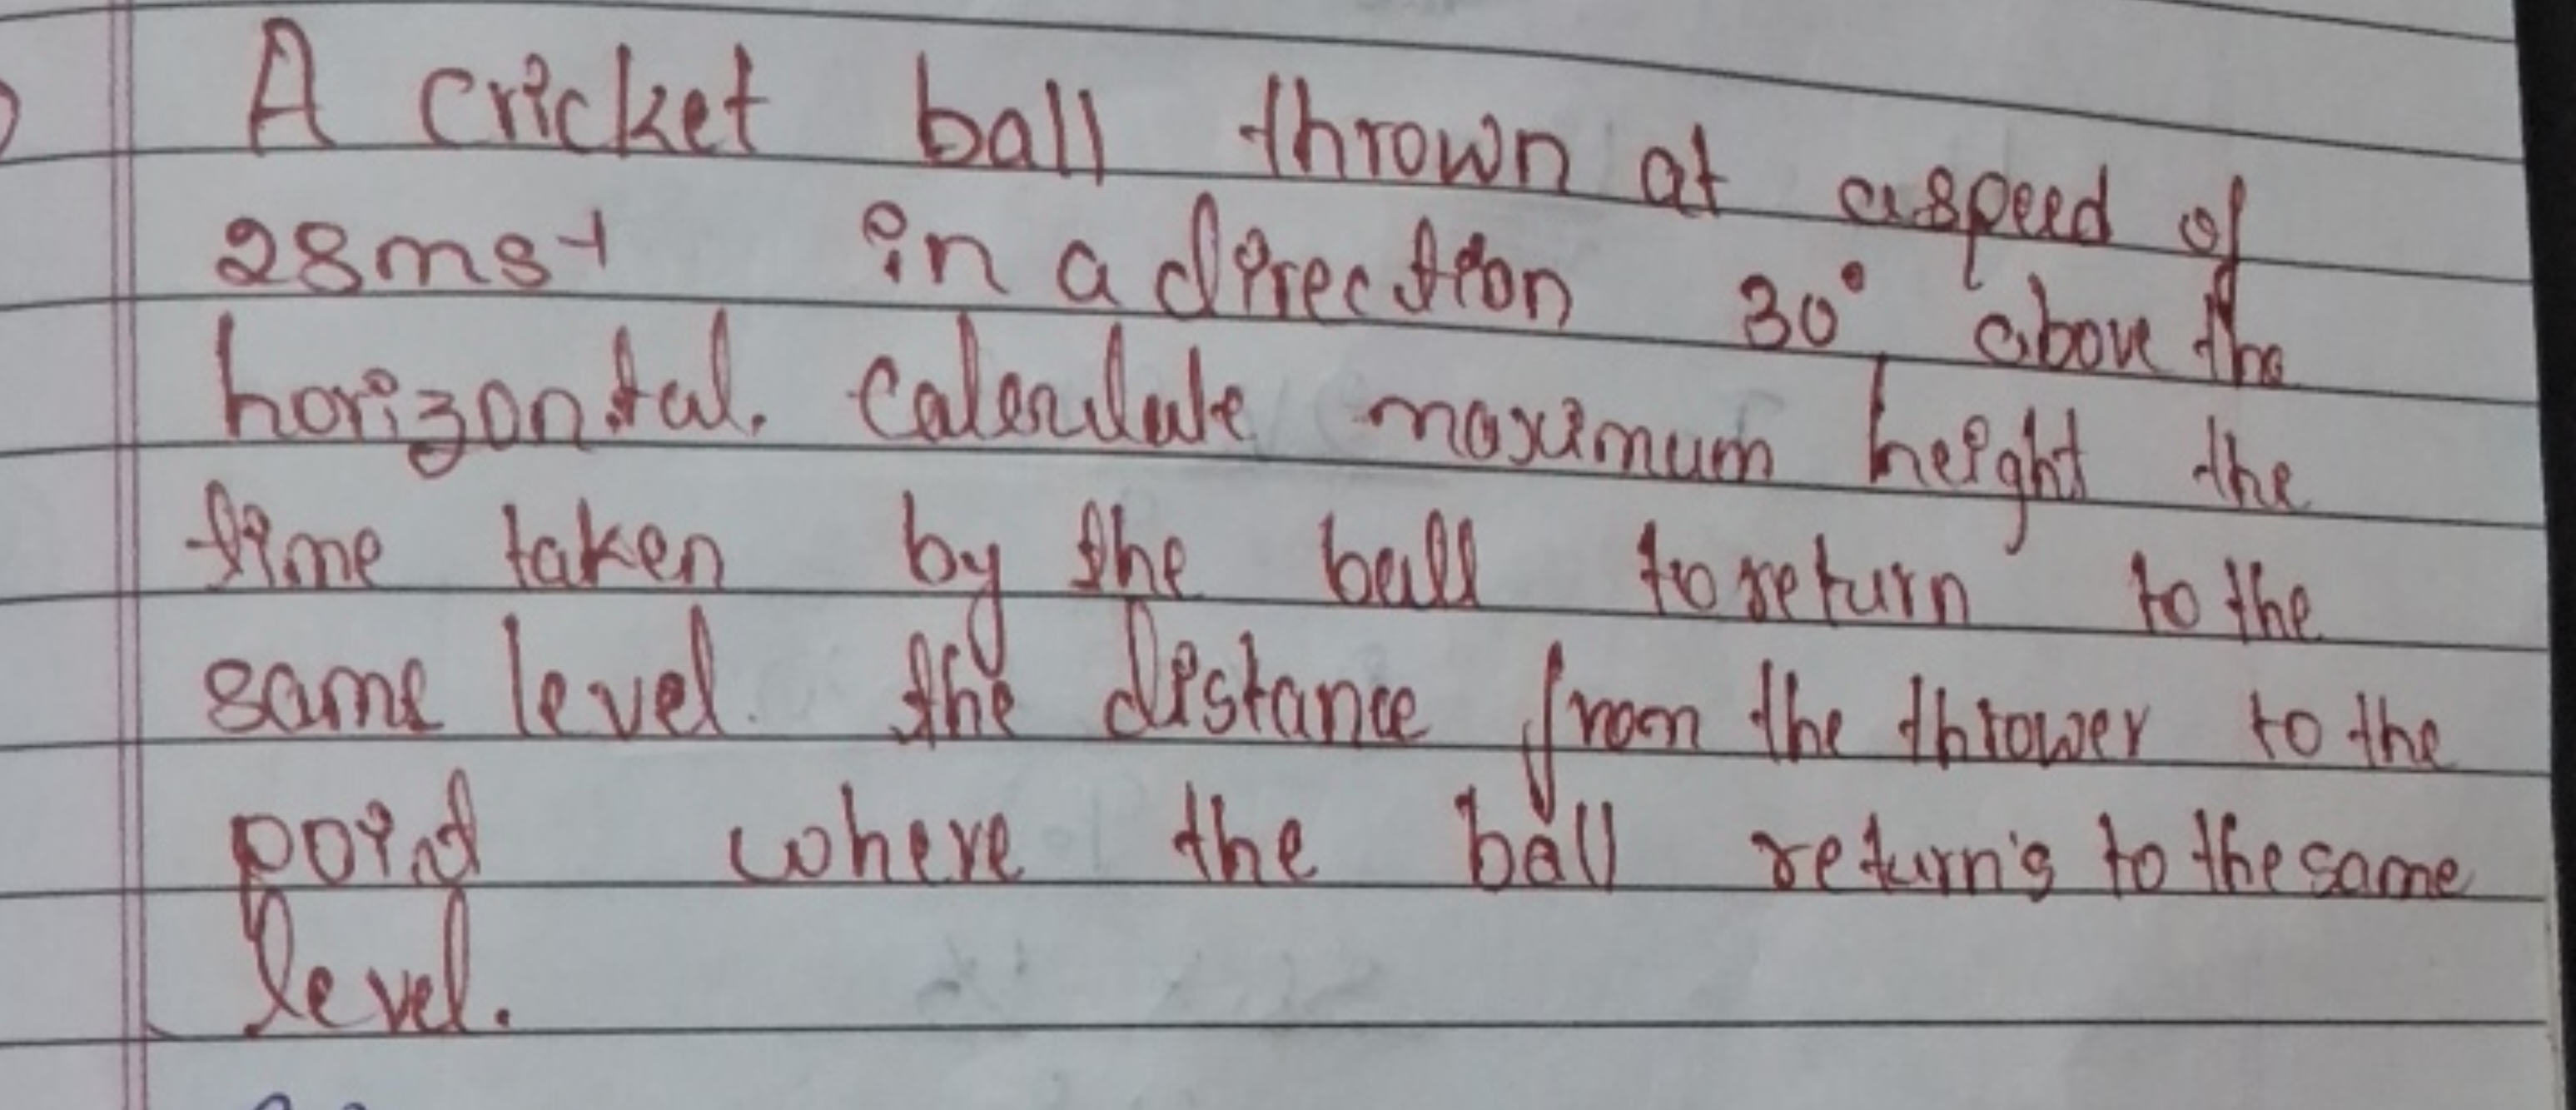 A cricket ball thrown at a speed of
28ms-1 in a direction 30° above the
horizontal. Calculate maximum height the
time taken by the ball to return to the
same level. the distance from the thrower to the
point where the ball return's to the same
level.